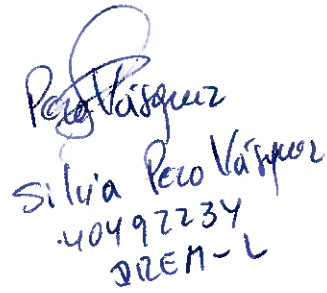 Pezo Vásquez
Silvia Pezo Vásquez
40492234
DREM-L